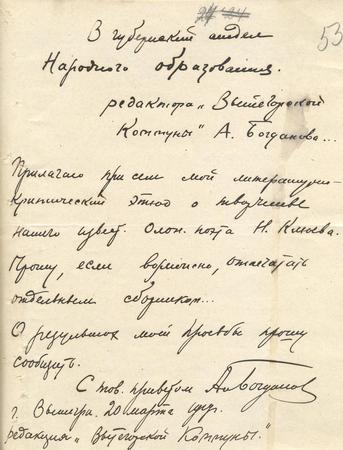 53
В губернский отдел
Народного образования.
редактора „Вытегорской
Коммуны" А. Богданова...
Прилагаю при сем мой литературно-
критический этюд о творчестве
нашего извест. Олон. поэта Н. Клюева.
Прошу, если возможно, отпечатать
отдельным сборником...
О результатах моей просьбы прошу
сообщить.
С тов. приветом А. Богданов
г. Вытегра. 20 марта
редакция „Вытегорской Коммуны."